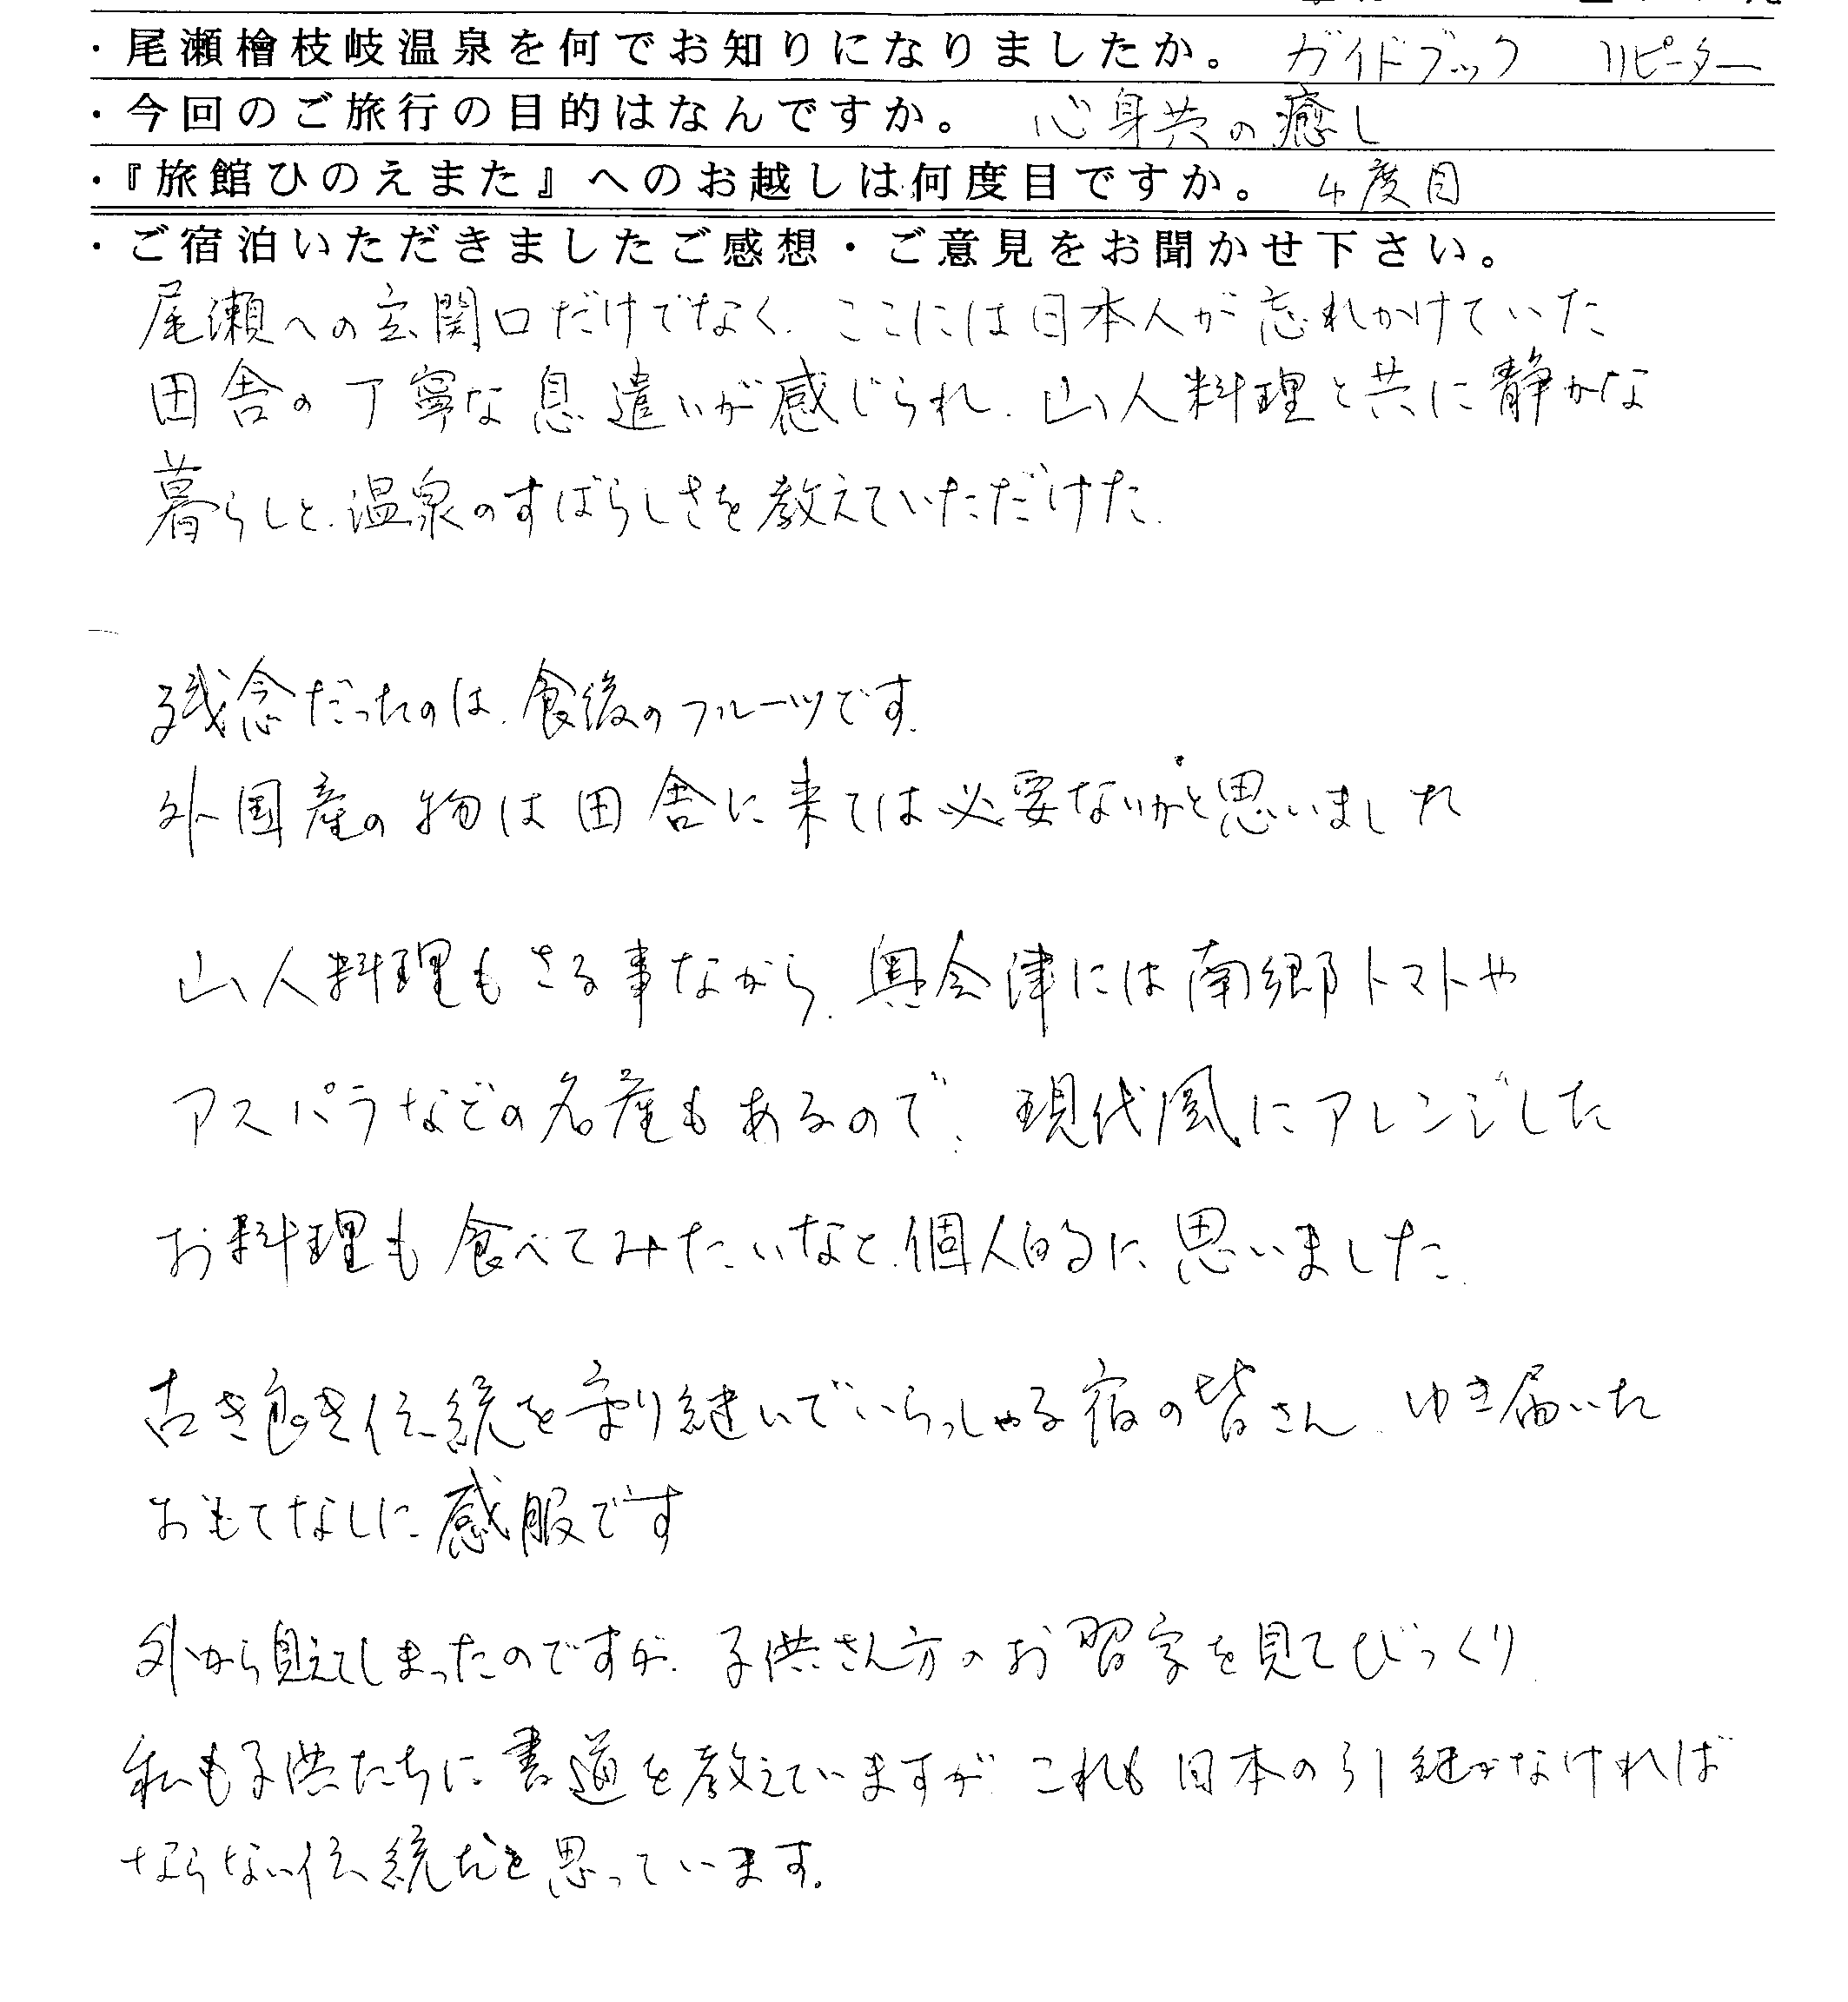 ・尾瀬檜枝岐温泉を何でお知りになりましたか。 ガイドブック リピーター
・今回のご旅行の目的はなんですか。 心身共の癒し
・『旅館ひのえまた』へのお越しは何度目ですか。 4度目
・ご宿泊いただきましたご感想・ご意見をお聞かせ下さい。
尾瀬への玄関口だけでなく、ここには日本人が忘れかけていた
田舎の丁寧な息遣いが感じられ、山人料理と共に静かな
暮らしと、温泉のすばらしさを教えていただけた。
残念だったのは、食後のフルーツです。
外国産の物は田舎に来ては必要ないかと思いました
山人料理もさる事ながら、奥会津には南郷トマトや
アスパラなどの名産もあるので、現代風にアレンジした
お料理も食べてみたいなと、個人的に思いました。
古き良き伝統を守り継いでいらっしゃる宿の皆さん、ゆき届いた
おもてなしに感服です
外から見えてしまったのですが、子供さん方のお習字を見てびっくり。
私も子供たちに書道を教えていますが、これも日本の引継がなければ
ならない伝統だと思っています。